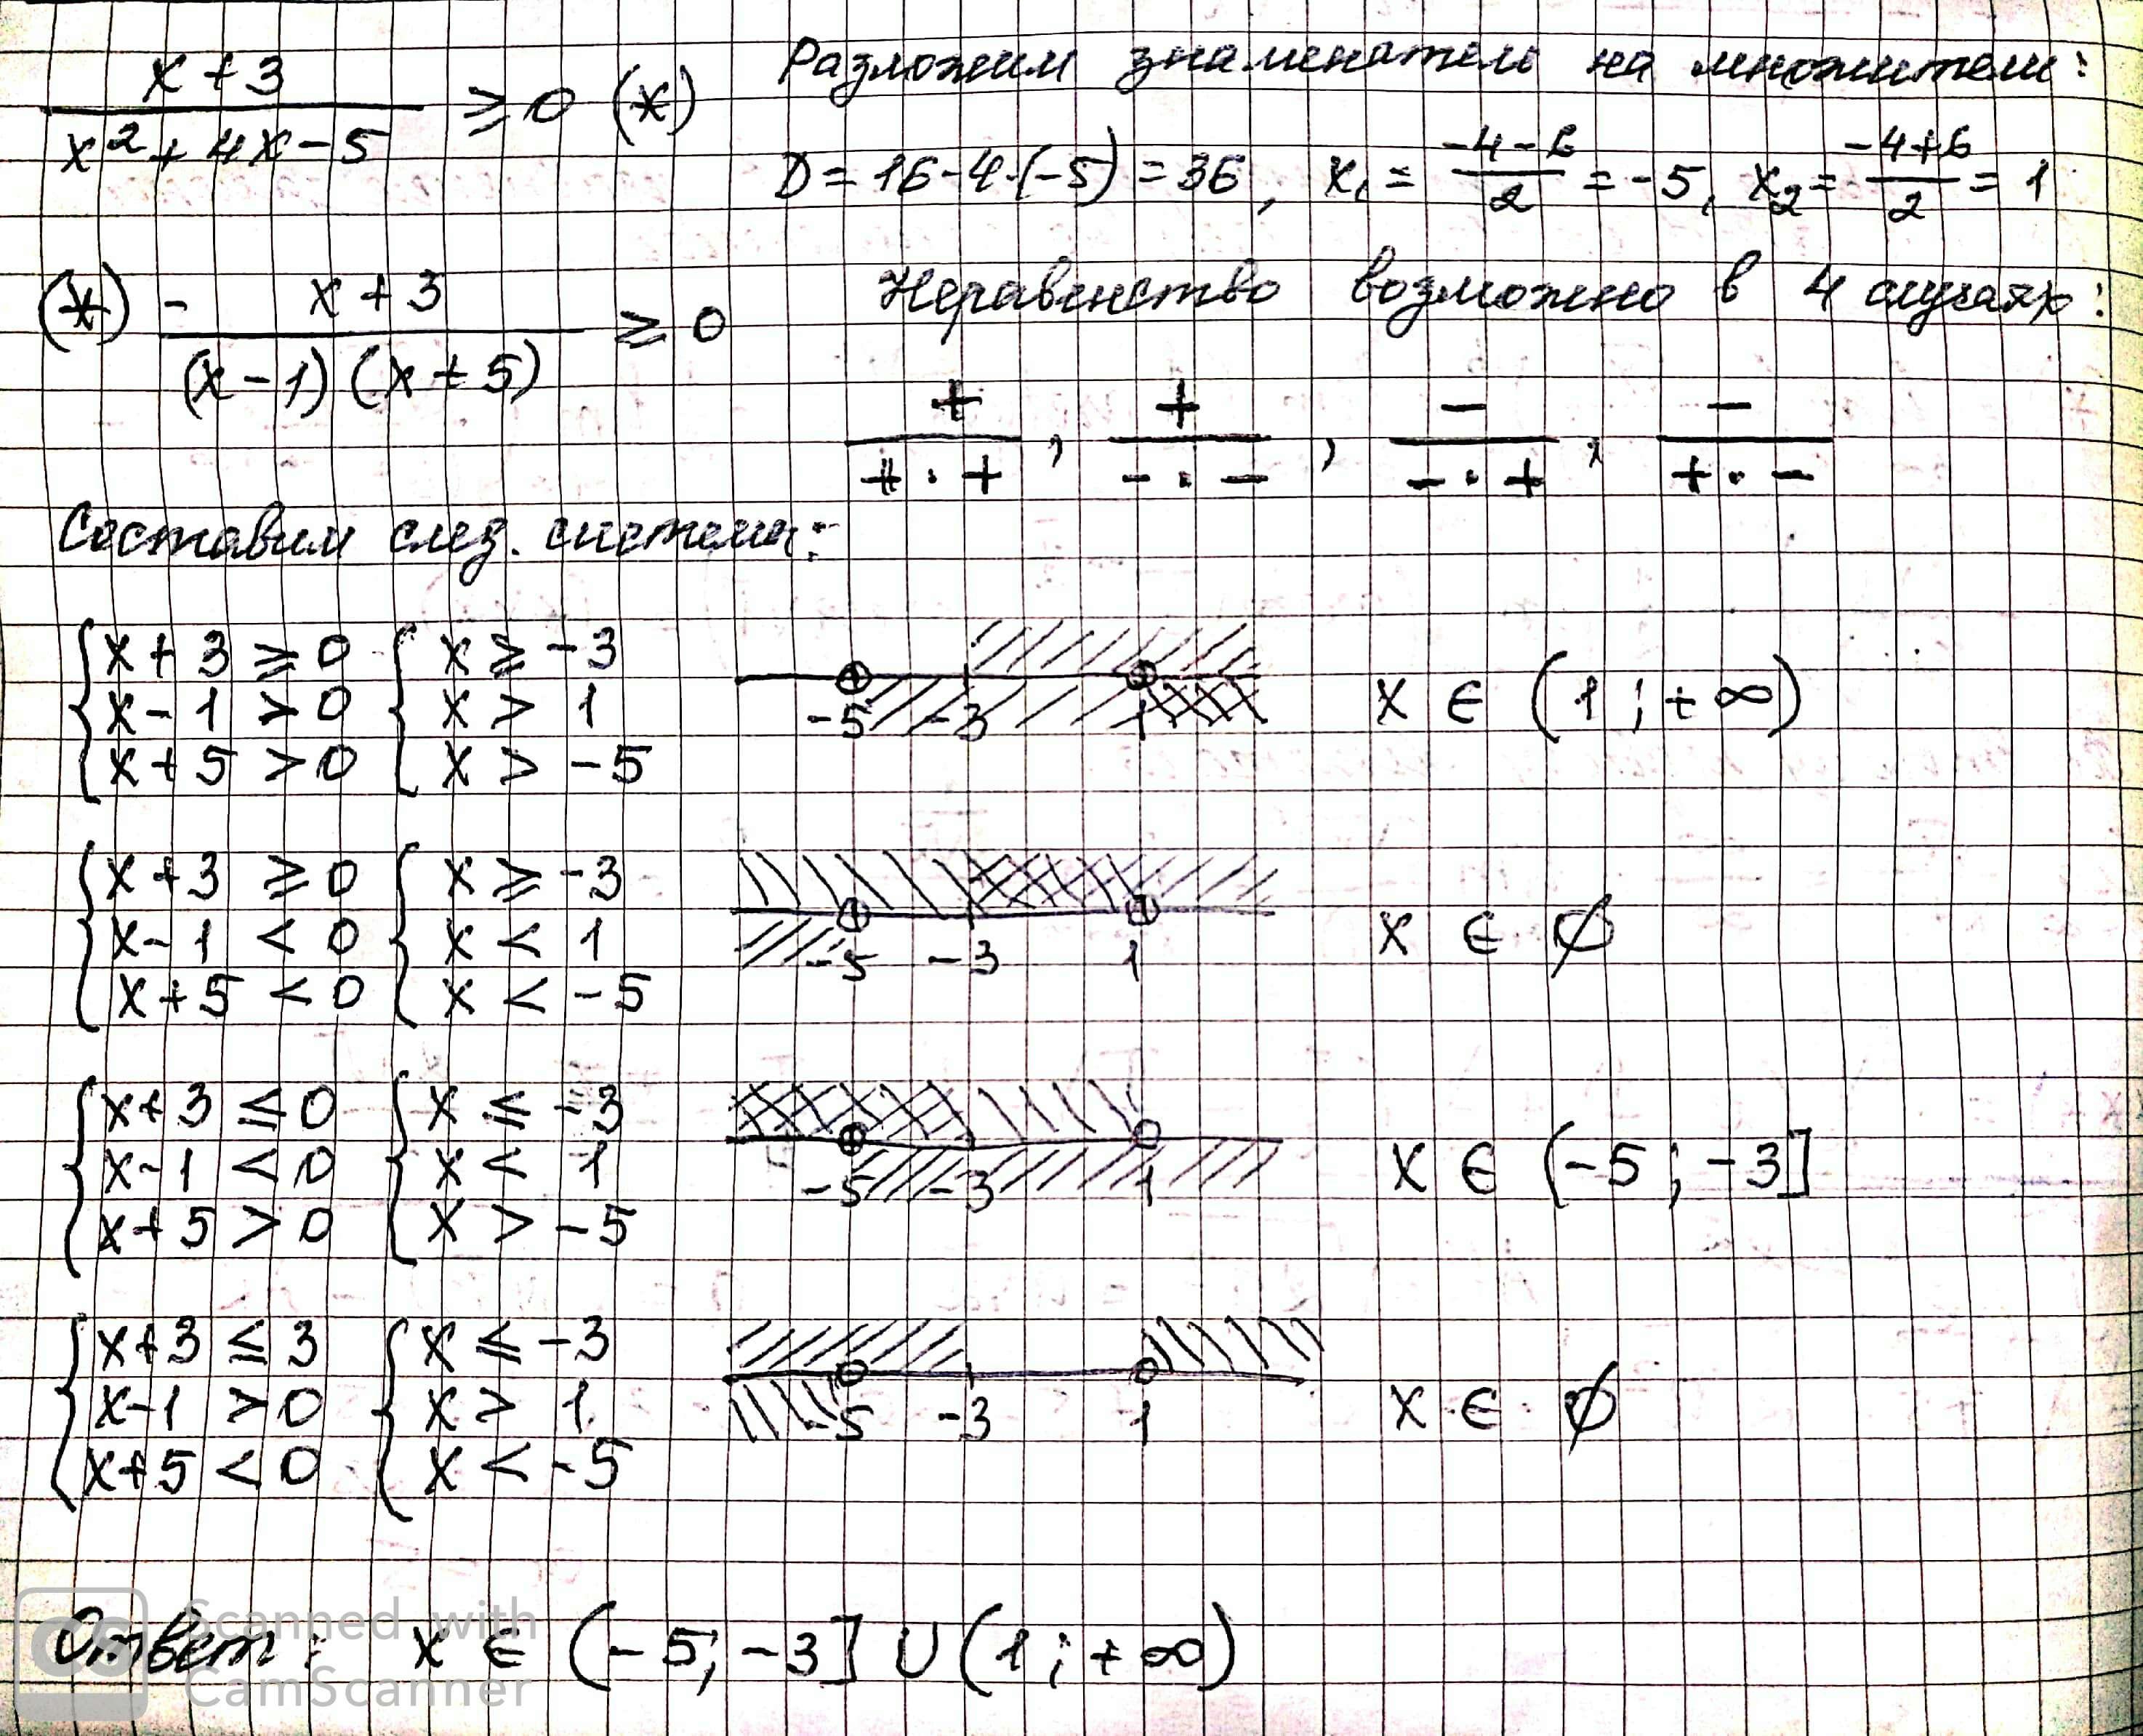 x+3 / x²+4x-5 ≥ 0 (*)
Разложим знаменатель на множители:
D = 16-4·(-5) = 36, x₁ = (-4-6)/2 = -5, x₂ = (-4+6)/2 = 1
(*) - x+3 / (x-1)(x+5) ≥ 0
Неравенство возможно в 4 случаях:
+ / +·+ , + / -·- , - / -·+ , - / +·-
Составим след. системы:
{x+3 ≥ 0 {x ≥ -3
{x-1 > 0 {x > 1
{x+5 > 0 {x > -5
-5 -3 1
x ∈ (1;+∞)
{x+3 ≥ 0 {x ≥ -3
{x-1 < 0 {x < 1
{x+5 < 0 {x < -5
-5 -3 1
x ∈ ∅
{x+3 ≤ 0 {x ≤ -3
{x-1 < 0 {x < 1
{x+5 > 0 {x > -5
-5 -3 1
x ∈ (-5;-3]
{x+3 ≤ 3 {x ≤ -3
{x-1 > 0 {x > 1
{x+5 < 0 {x < -5
-5 -3 1
x ∈ ∅
Ответ: x ∈ (-5;-3] ∪ (1;+∞)
CS Scanned with
CamScanner